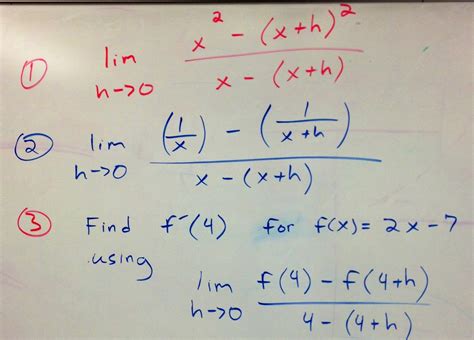 ① lim h->0 x² - (x+h)² / x - (x+h)
② lim h->0 (1/x) - (1/x+h) / x - (x+h)
③ Find f'(4) for f(x) = 2x - 7
using
lim h->0 f(4) - f(4+h) / 4 - (4+h)